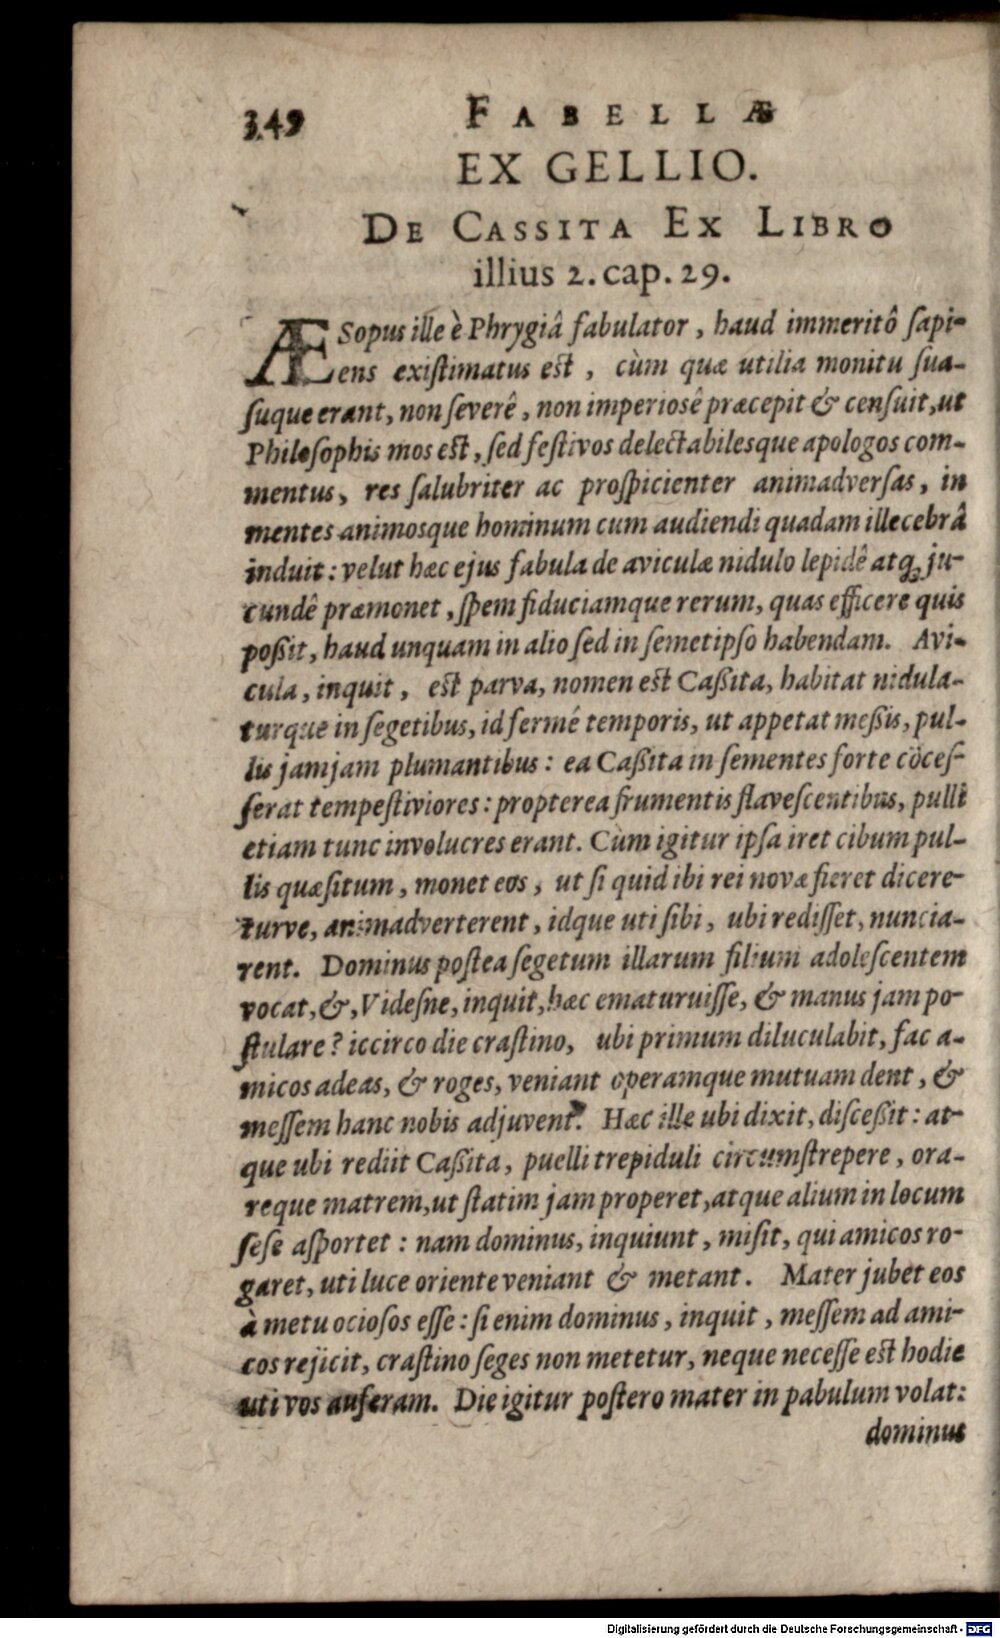 349
FABELLÆ
EX GELLIO.
DE CASSITA EX LIBRO
illius 2. cap. 29.
ÆSopus ille è Phrygiâ fabulator, haud immeritô ſapi-
ens exiſtimatus eſt, cùm quæ utilia monitu ſua-
ſuque erant, non ſeverê, non imperiosê præcepit & cenſuit, ut
Philoſophis mos eſt, ſed feſtivos delectabilesque apologos com-
mentus, res ſalubriter ac proſpicienter animadverſas, in
mentes animosque hominum cum audiendi quadam illecebrâ
induit: velut hæc ejus fabula de aviculæ nidulo lepidê atq; ju-
cundê præmonet, ſpem fiduciamque rerum, quas efficere quis
poßit, haud unquam in alio ſed in ſemetipſo habendam. Avi-
cula, inquit, eſt parva, nomen eſt Caßita, habitat nidula-
turque in ſegetibus, id fermé temporis, ut appetat meßis, pul-
lis jamjam plumantibus: ea Caßita in ſementes forte cōceſ-
ſerat tempeſtiviores: propterea frumentis flaveſcentibus, pulli
etiam tunc involucres erant. Cùm igitur ipſa iret cibum pul-
lis quæſitum, monet eos, ut ſi quid ibi rei novæ fieret dicere-
turve, animadverterent, idque uti ſibi, ubi rediſſet, nuncia-
rent. Dominus poſtea ſegetum illarum filium adoleſcentem
vocat, &, Videſne, inquit, hæc ematuruiſſe, & manus jam po-
ſtulare? iccirco die craſtino, ubi primum diluculabit, fac a-
micos adeas, & roges, veniant operamque mutuam dent, &
meſſem hanc nobis adjuvent. Hæc ille ubi dixit, diſceßit: at-
que ubi rediit Caßita, puelli trepiduli circumſtrepere, ora-
reque matrem, ut ſtatim jam properet, atque alium in locum
ſeſe aſportet: nam dominus, inquiunt, miſit, qui amicos ro-
garet, uti luce oriente veniant & metant. Mater jubet eos
à metu ocioſos eſſe: ſi enim dominus, inquit, meſſem ad ami-
cos rejicit, craſtino ſeges non metetur, neque neceſſe eſt hodie
uti vos auferam. Die igitur poſtero mater in pabulum volat:
dominus
Digitalisierung gefördert durch die Deutsche Forschungsgemeinschaft - DFG